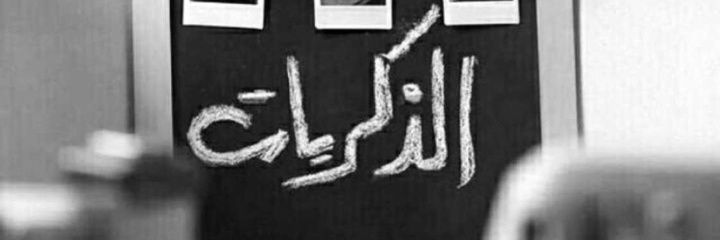 الذكريات